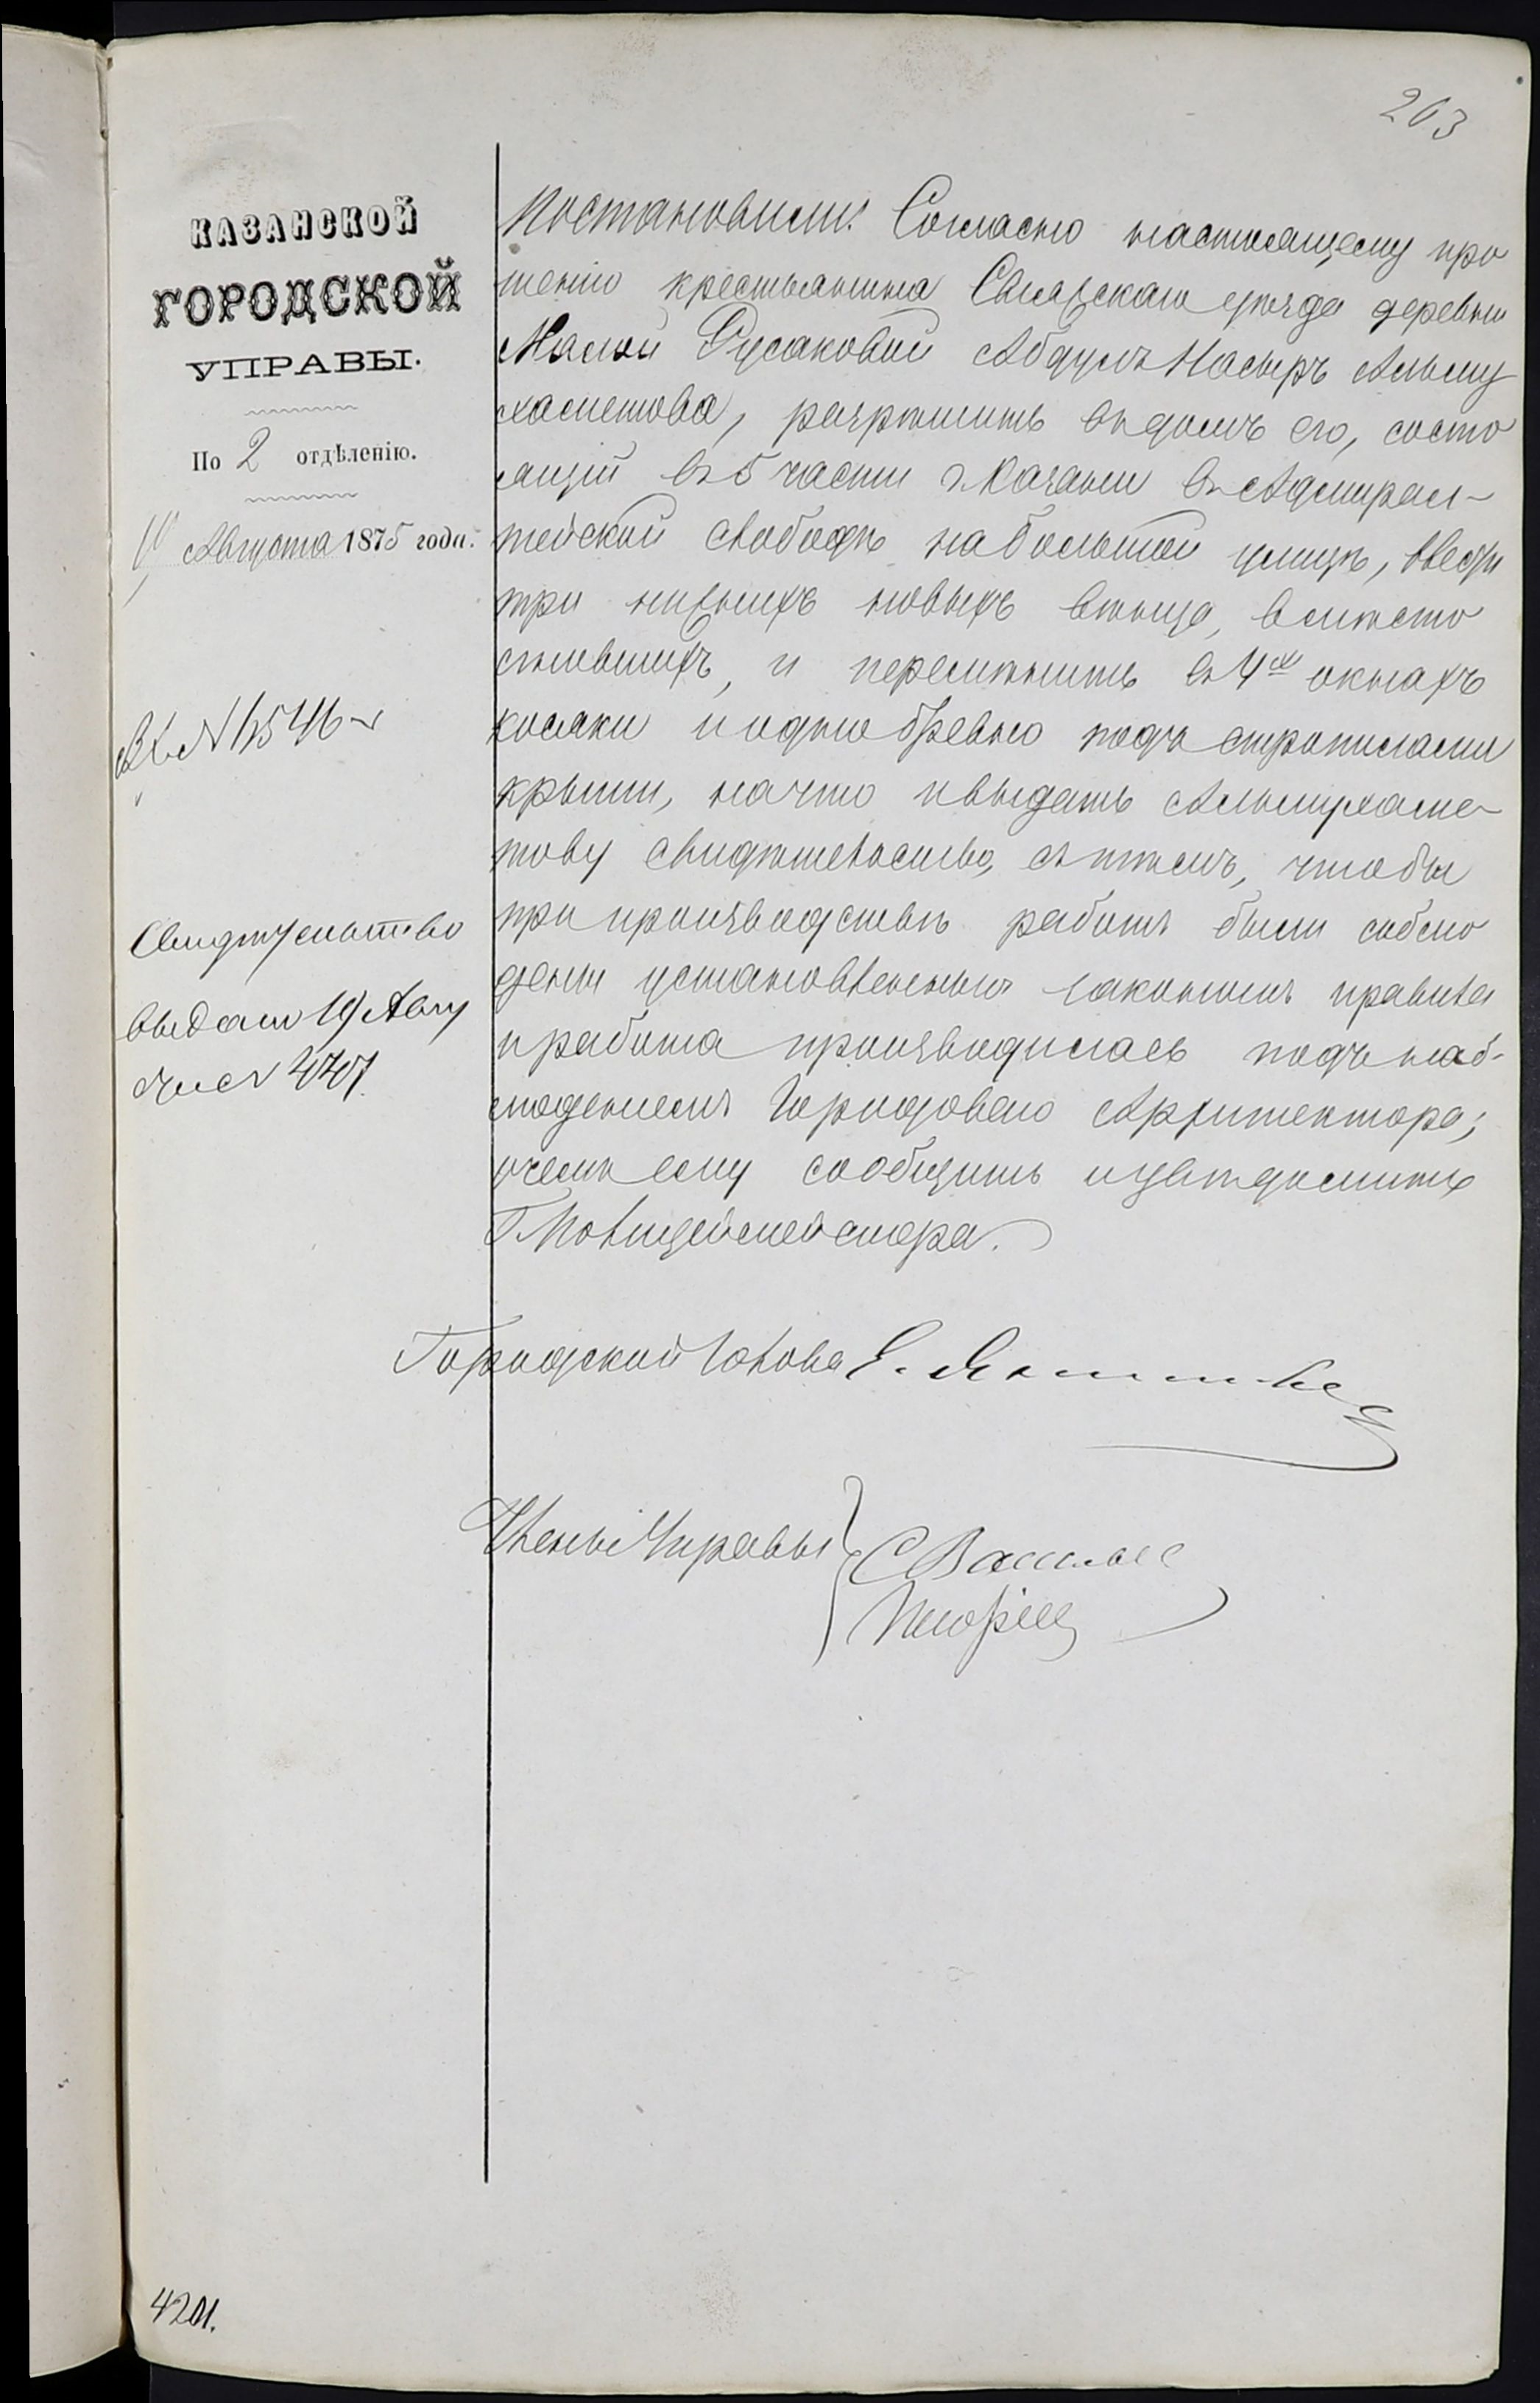 203
КАЗАНСКОЙ
ГОРОДСКОЙ
УПРАВЫ.
По 2 отдѣленію.
Августа 1875 года.
Вх. №
Свидѣтельство
выдано 19 Авгу
ста №
Постановили: Согласно настоящему про
шенію крестьянина Свіяжскаго уѣзда деревни
Малой Русаковой Абдулъ Насыръ Альму
хаметова, разрѣшить въ домѣ его, состо
ящій въ 5 части г. Казани въ Адмирал-
тейской слободѣ на большой улицѣ, ввести
три нижнихъ новыхъ вѣнца, вмѣсто
сгнившихъ, и перемѣнить въ 4хъ окнахъ
косяки и одно бревно подъ стропилами
крыши, на что и выдать Альмухаме-
тову свидѣтельство, съ тѣмъ, чтобы
при производствѣ работъ были соблю
дены установленныя закономъ правила
и работа производилась подъ наб-
люденіемъ Городоваго Архитектора;
о чемъ ему сообщить и увѣдомить
Г. Полицеймейстера.
Городской Голова Е.
Члены Управы
4201.